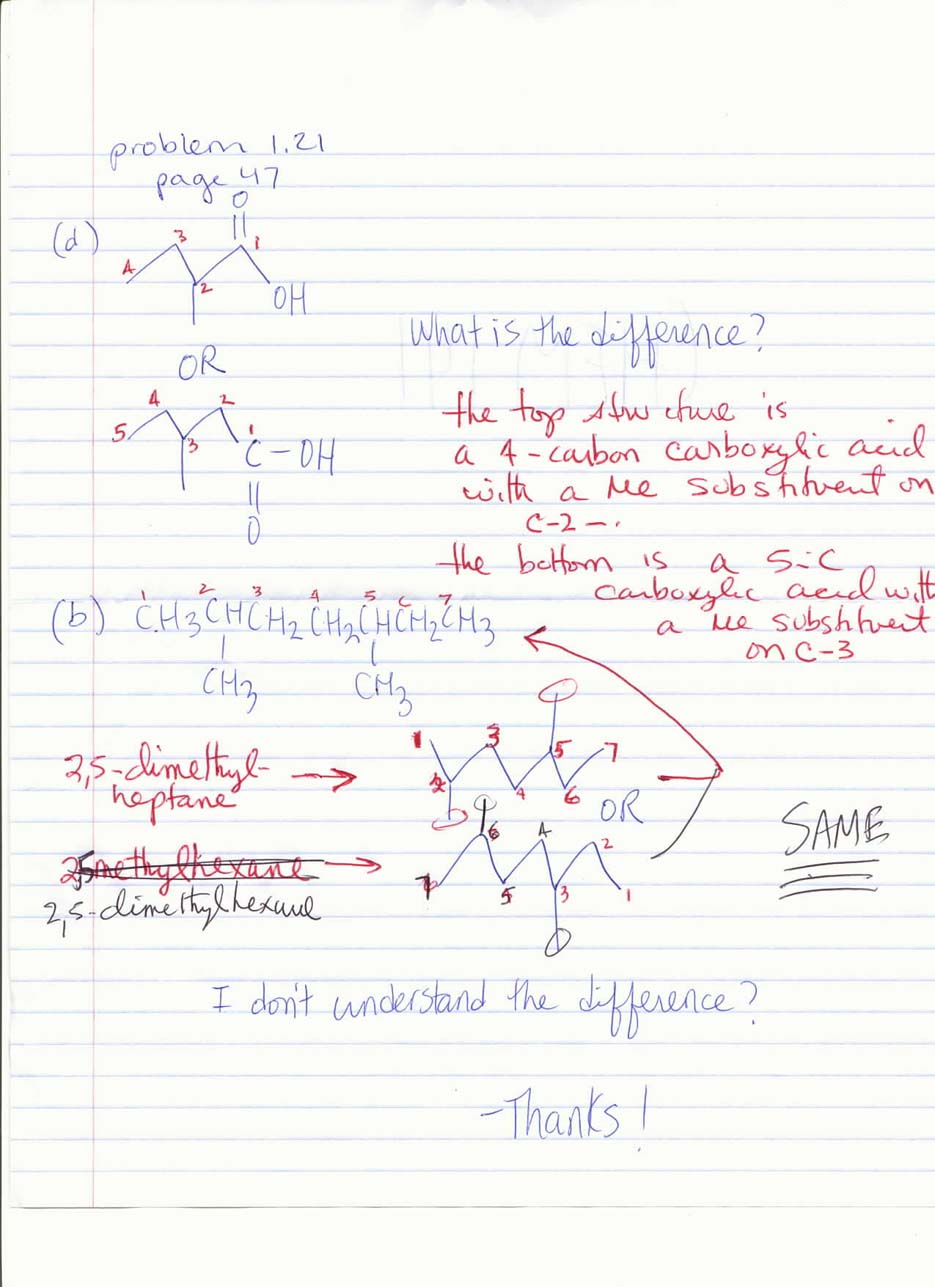 problem 1.21
page 47
(d)
O
4 3 2 1
OH
What is the difference?
OR
the top structure is
a 4-carbon carboxylic acid
with a Me substituent on
C-2 -.
5 4 3 2 1
C-OH
O
the bottom is a 5-C
carboxylic acid with
a Me substituent
on C-3
1 2 3 4 5 6 7
(b) CH3CHCH2CH2CHCH2CH3
CH3 CH3
2,5-dimethyl-
heptane
1 2 3 4 5 6 7
OR
SAME
25methylhexane
2,5-dimethylhexane
7 6 5 4 3 2 1
I don't understand the difference?
-Thanks!